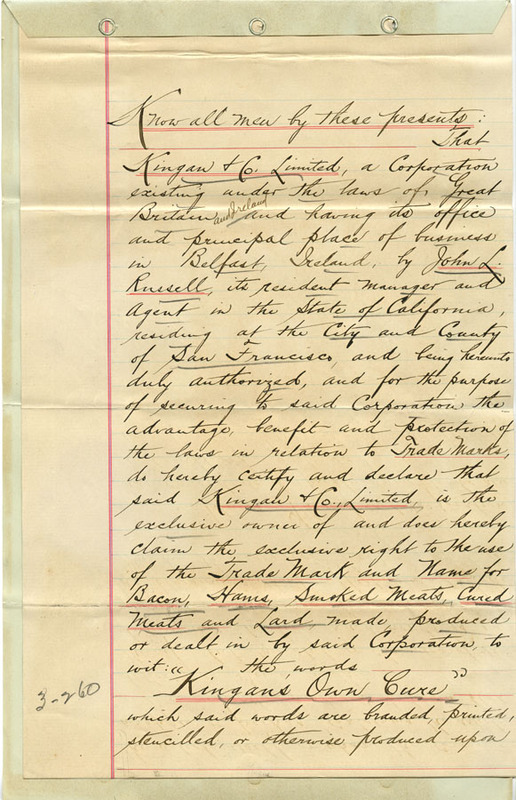 Know all men by these presents:
That
Kingan & C. Limited, a Corporation
existing under the laws of, Great
Britain and Ireland and having its office
and principal place of business
in Belfast, Ireland, by John L.
Russell, its resident manager and
Agent in the State of California,
residing at the City and County
of San Francisco, and being hereunto
duly authorized, and for the purpose
of securing to said Corporation the
advantage, benefit and protection of
the laws in relation to Trade Marks,
do hereby certify and declare that
said Kingan & C., Limited, is the
exclusive owner of and does hereby
claim the exclusive right to the use
of the Trade Mark and Name for
Bacon, Hams, Smoked Meats, Cured
Meats and Lard, made, produced
or dealt in by said Corporation, to
wit: the words
"Kingan's Own Cure"
which said words are branded, printed,
stencilled, or otherwise produced upon
3-260